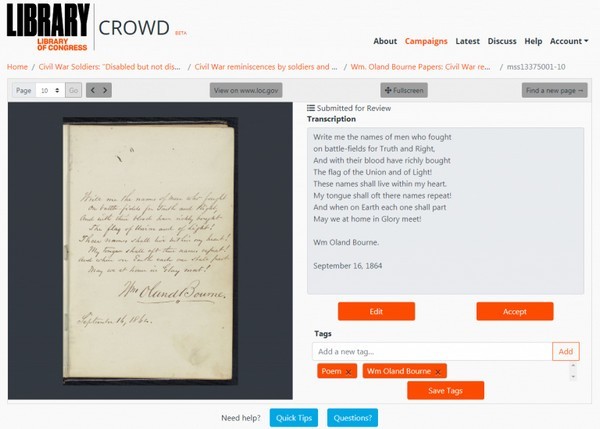 LIBRARY
LIBRARY OF CONGRESS
CROWD BETA
About Campaigns Latest Discuss Help Account
Home / Civil War Soldiers: "Disabled but not dis... / Civil War reminiscences by soldiers and ... / Wm. Oland Bourne Papers: Civil War re... / mss13375001-10
Page 10 Go < > View on www.loc.gov Fullscreen Find a new page →
Write me the names of men who fought
On battle-fields for Truth and Right,
And with their blood have richly bought
The flag of Union and of Light!
These names shall live within my heart!
My tongue shall oft their names repeat!
And when on Earth each one shall part
May we at home in Glory meet!
Wm Oland Bourne.
September 16, 1864.
Submitted for Review
Transcription
Write me the names of men who fought
on battle-fields for Truth and Right,
And with their blood have richly bought
The flag of the Union and of Light!
These names shall live within my heart.
My tongue shall oft there names repeat!
And when on Earth each one shall part
May we at home in Glory meet!
Wm Oland Bourne.
September 16, 1864
Edit Accept
Tags
Add a new tag... Add
Poem x Wm Oland Bourne x
Save Tags
Need help? Quick Tips Questions?